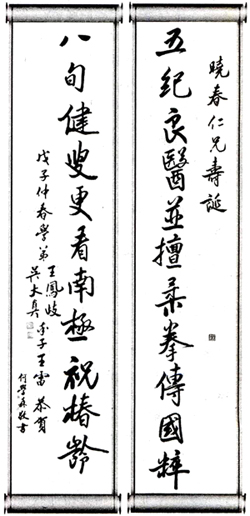 曉春仁兄壽誕
五紀良醫並擅柔拳傳國粹
八旬健叟更看南極祝椿齡
戊子仲春學弟王鳳岐
吳大真率子王雷恭賀
何學森敬書